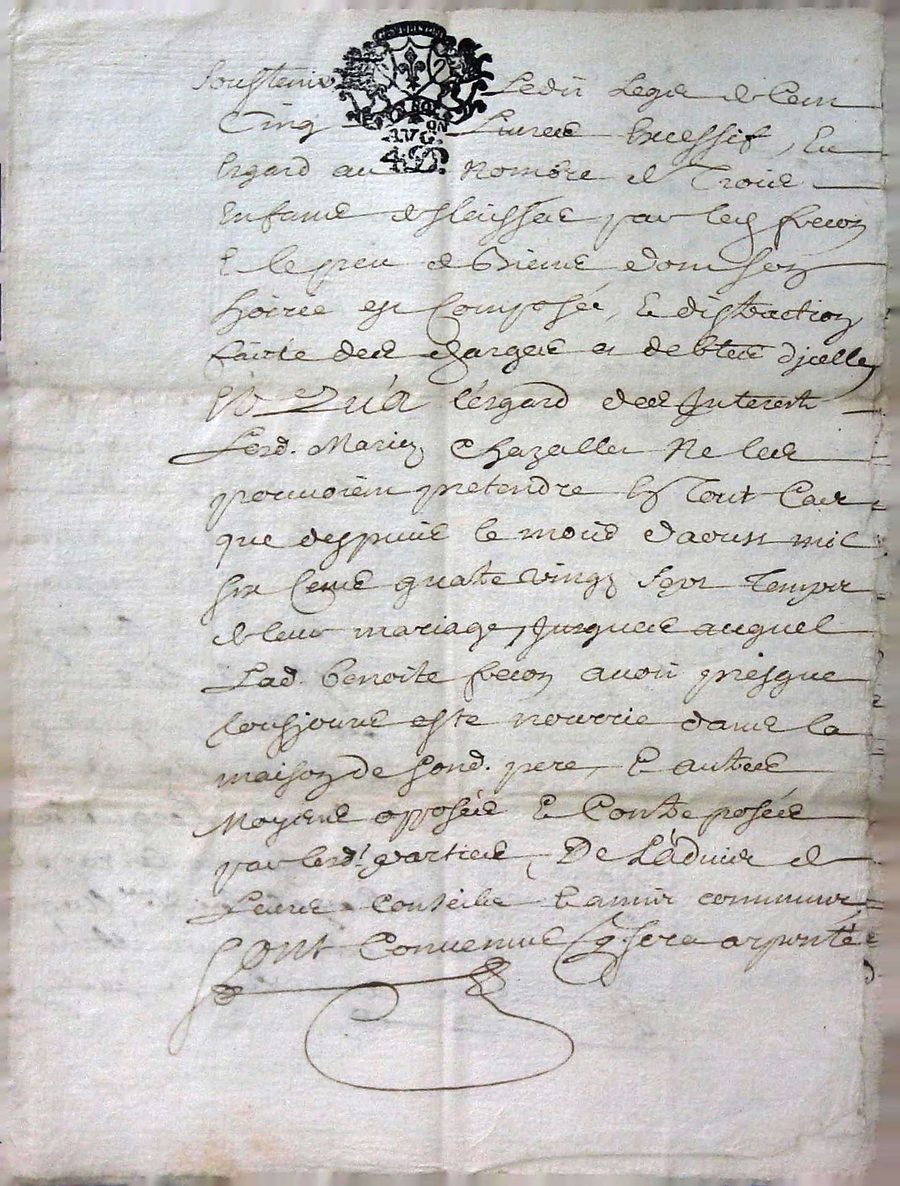 Soustenir Ledit Legat de Cent
Cinq Livres Excessif, Eu
Ergard au Nombre de Trois
Enfans delaissés par led frecon
E le peu de Biens dont son
hoirie est Composée, E distraction
faicte des charges et debtes d'jcelle
Et Qu'a l'ergard des Interests
Lesd. Mariés Chazalles Ne les
pouvoient pretendre En Tout Cas
que despuis le mois d'aoust mil
six Cens quatre vingt sept Temps
de leur mariage, Jusques auquel
Lad. benoite frecon avoit presque
tousjours esté nourrie dans la
maison de sond. pere, E autres
Moyens opposés E Contreposés
par lesd. parties, De L'advis de
Leurs Conseils E amis communs
Sont Convenus Qu sera arpenté